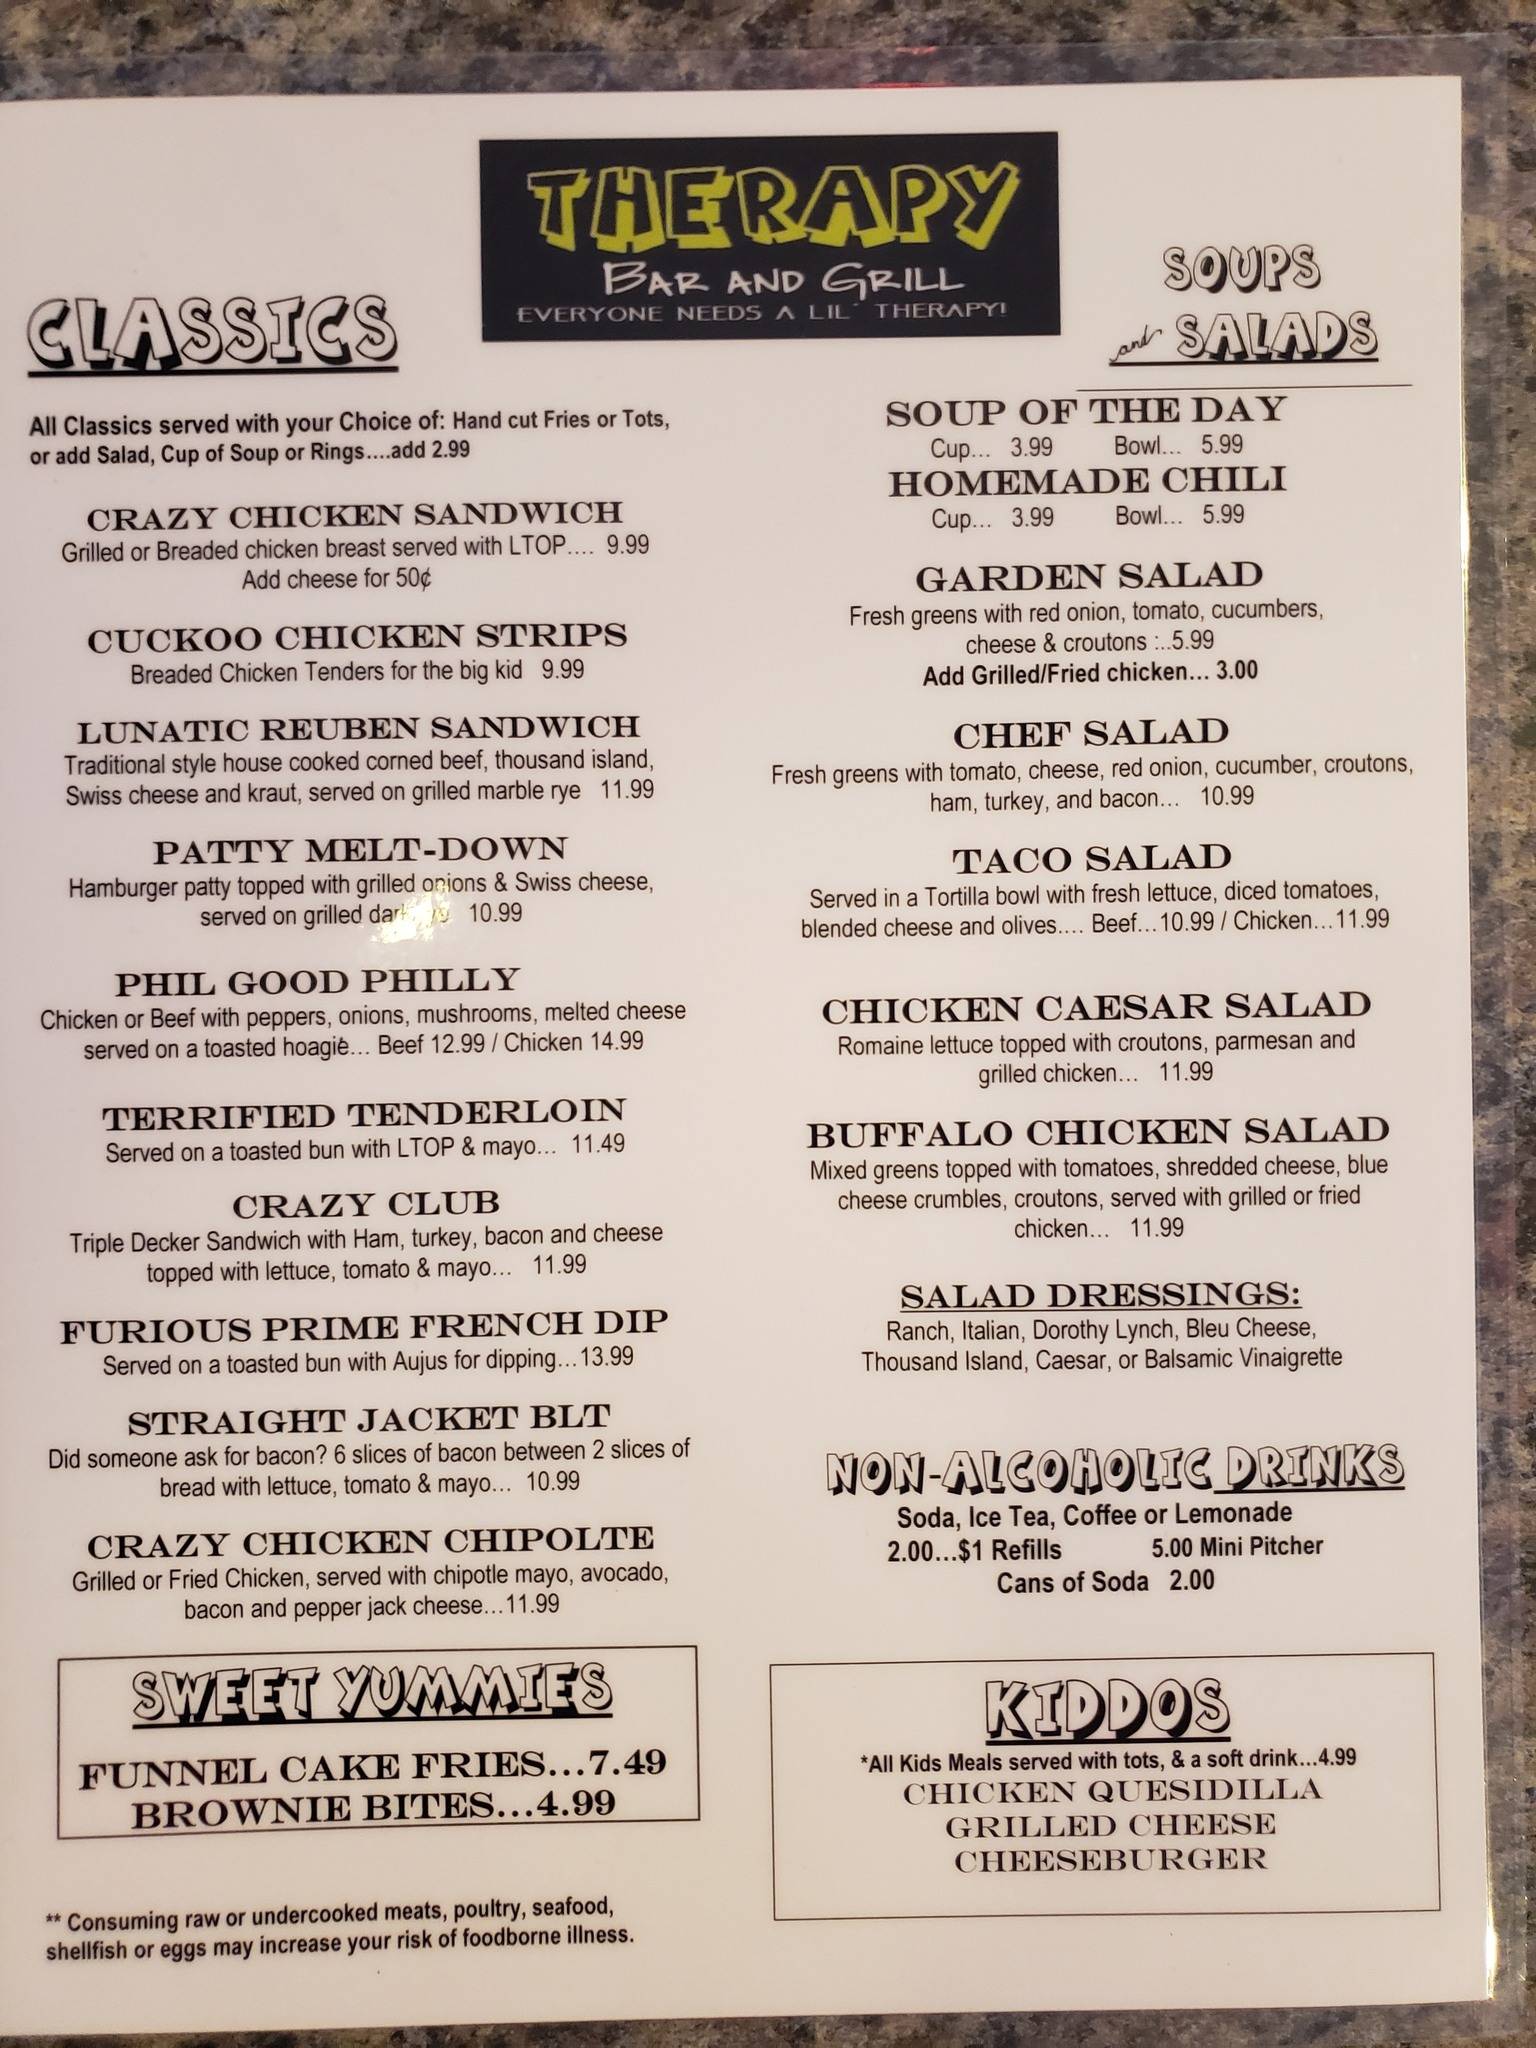 THERAPY
BAR AND GRILL
EVERYONE NEEDS A LIL' THERAPY!
CLASSICS
All Classics served with your Choice of: Hand cut Fries or Tots,
or add Salad, Cup of Soup or Rings....add 2.99
CRAZY CHICKEN SANDWICH
Grilled or Breaded chicken breast served with LTOP.... 9.99
Add cheese for 50¢
CUCKOO CHICKEN STRIPS
Breaded Chicken Tenders for the big kid 9.99
LUNATIC REUBEN SANDWICH
Traditional style house cooked corned beef, thousand island,
Swiss cheese and kraut, served on grilled marble rye 11.99
PATTY MELT-DOWN
Hamburger patty topped with grilled onions & Swiss cheese,
served on grilled 10.99
PHIL GOOD PHILLY
Chicken or Beef with peppers, onions, mushrooms, melted cheese
served on a toasted hoagie... Beef 12.99 / Chicken 14.99
TERRIFIED TENDERLOIN
Served on a toasted bun with LTOP & mayo... 11.49
CRAZY CLUB
Triple Decker Sandwich with Ham, turkey, bacon and cheese
topped with lettuce, tomato & mayo... 11.99
FURIOUS PRIME FRENCH DIP
Served on a toasted bun with Aujus for dipping...13.99
STRAIGHT JACKET BLT
Did someone ask for bacon? 6 slices of bacon between 2 slices of
bread with lettuce, tomato & mayo... 10.99
CRAZY CHICKEN CHIPOLTE
Grilled or Fried Chicken, served with chipotle mayo, avocado,
bacon and pepper jack cheese...11.99
SWEET YUMMIES
FUNNEL CAKE FRIES...7.49
BROWNIE BITES...4.99
** Consuming raw or undercooked meats, poultry, seafood,
shellfish or eggs may increase your risk of foodborne illness.
SOUPS
and SALADS
SOUP OF THE DAY
Cup... 3.99 Bowl... 5.99
HOMEMADE CHILI
Cup... 3.99 Bowl... 5.99
GARDEN SALAD
Fresh greens with red onion, tomato, cucumbers,
cheese & croutons :..5.99
Add Grilled/Fried chicken... 3.00
CHEF SALAD
Fresh greens with tomato, cheese, red onion, cucumber, croutons,
ham, turkey, and bacon... 10.99
TACO SALAD
Served in a Tortilla bowl with fresh lettuce, diced tomatoes,
blended cheese and olives.... Beef...10.99 / Chicken...11.99
CHICKEN CAESAR SALAD
Romaine lettuce topped with croutons, parmesan and
grilled chicken... 11.99
BUFFALO CHICKEN SALAD
Mixed greens topped with tomatoes, shredded cheese, blue
cheese crumbles, croutons, served with grilled or fried
chicken... 11.99
SALAD DRESSINGS:
Ranch, Italian, Dorothy Lynch, Bleu Cheese,
Thousand Island, Caesar, or Balsamic Vinaigrette
NON-ALCOHOLIC DRINKS
Soda, Ice Tea, Coffee or Lemonade
2.00...$1 Refills 5.00 Mini Pitcher
Cans of Soda 2.00
KIDDOS
*All Kids Meals served with tots, & a soft drink...4.99
CHICKEN QUESIDILLA
GRILLED CHEESE
CHEESEBURGER